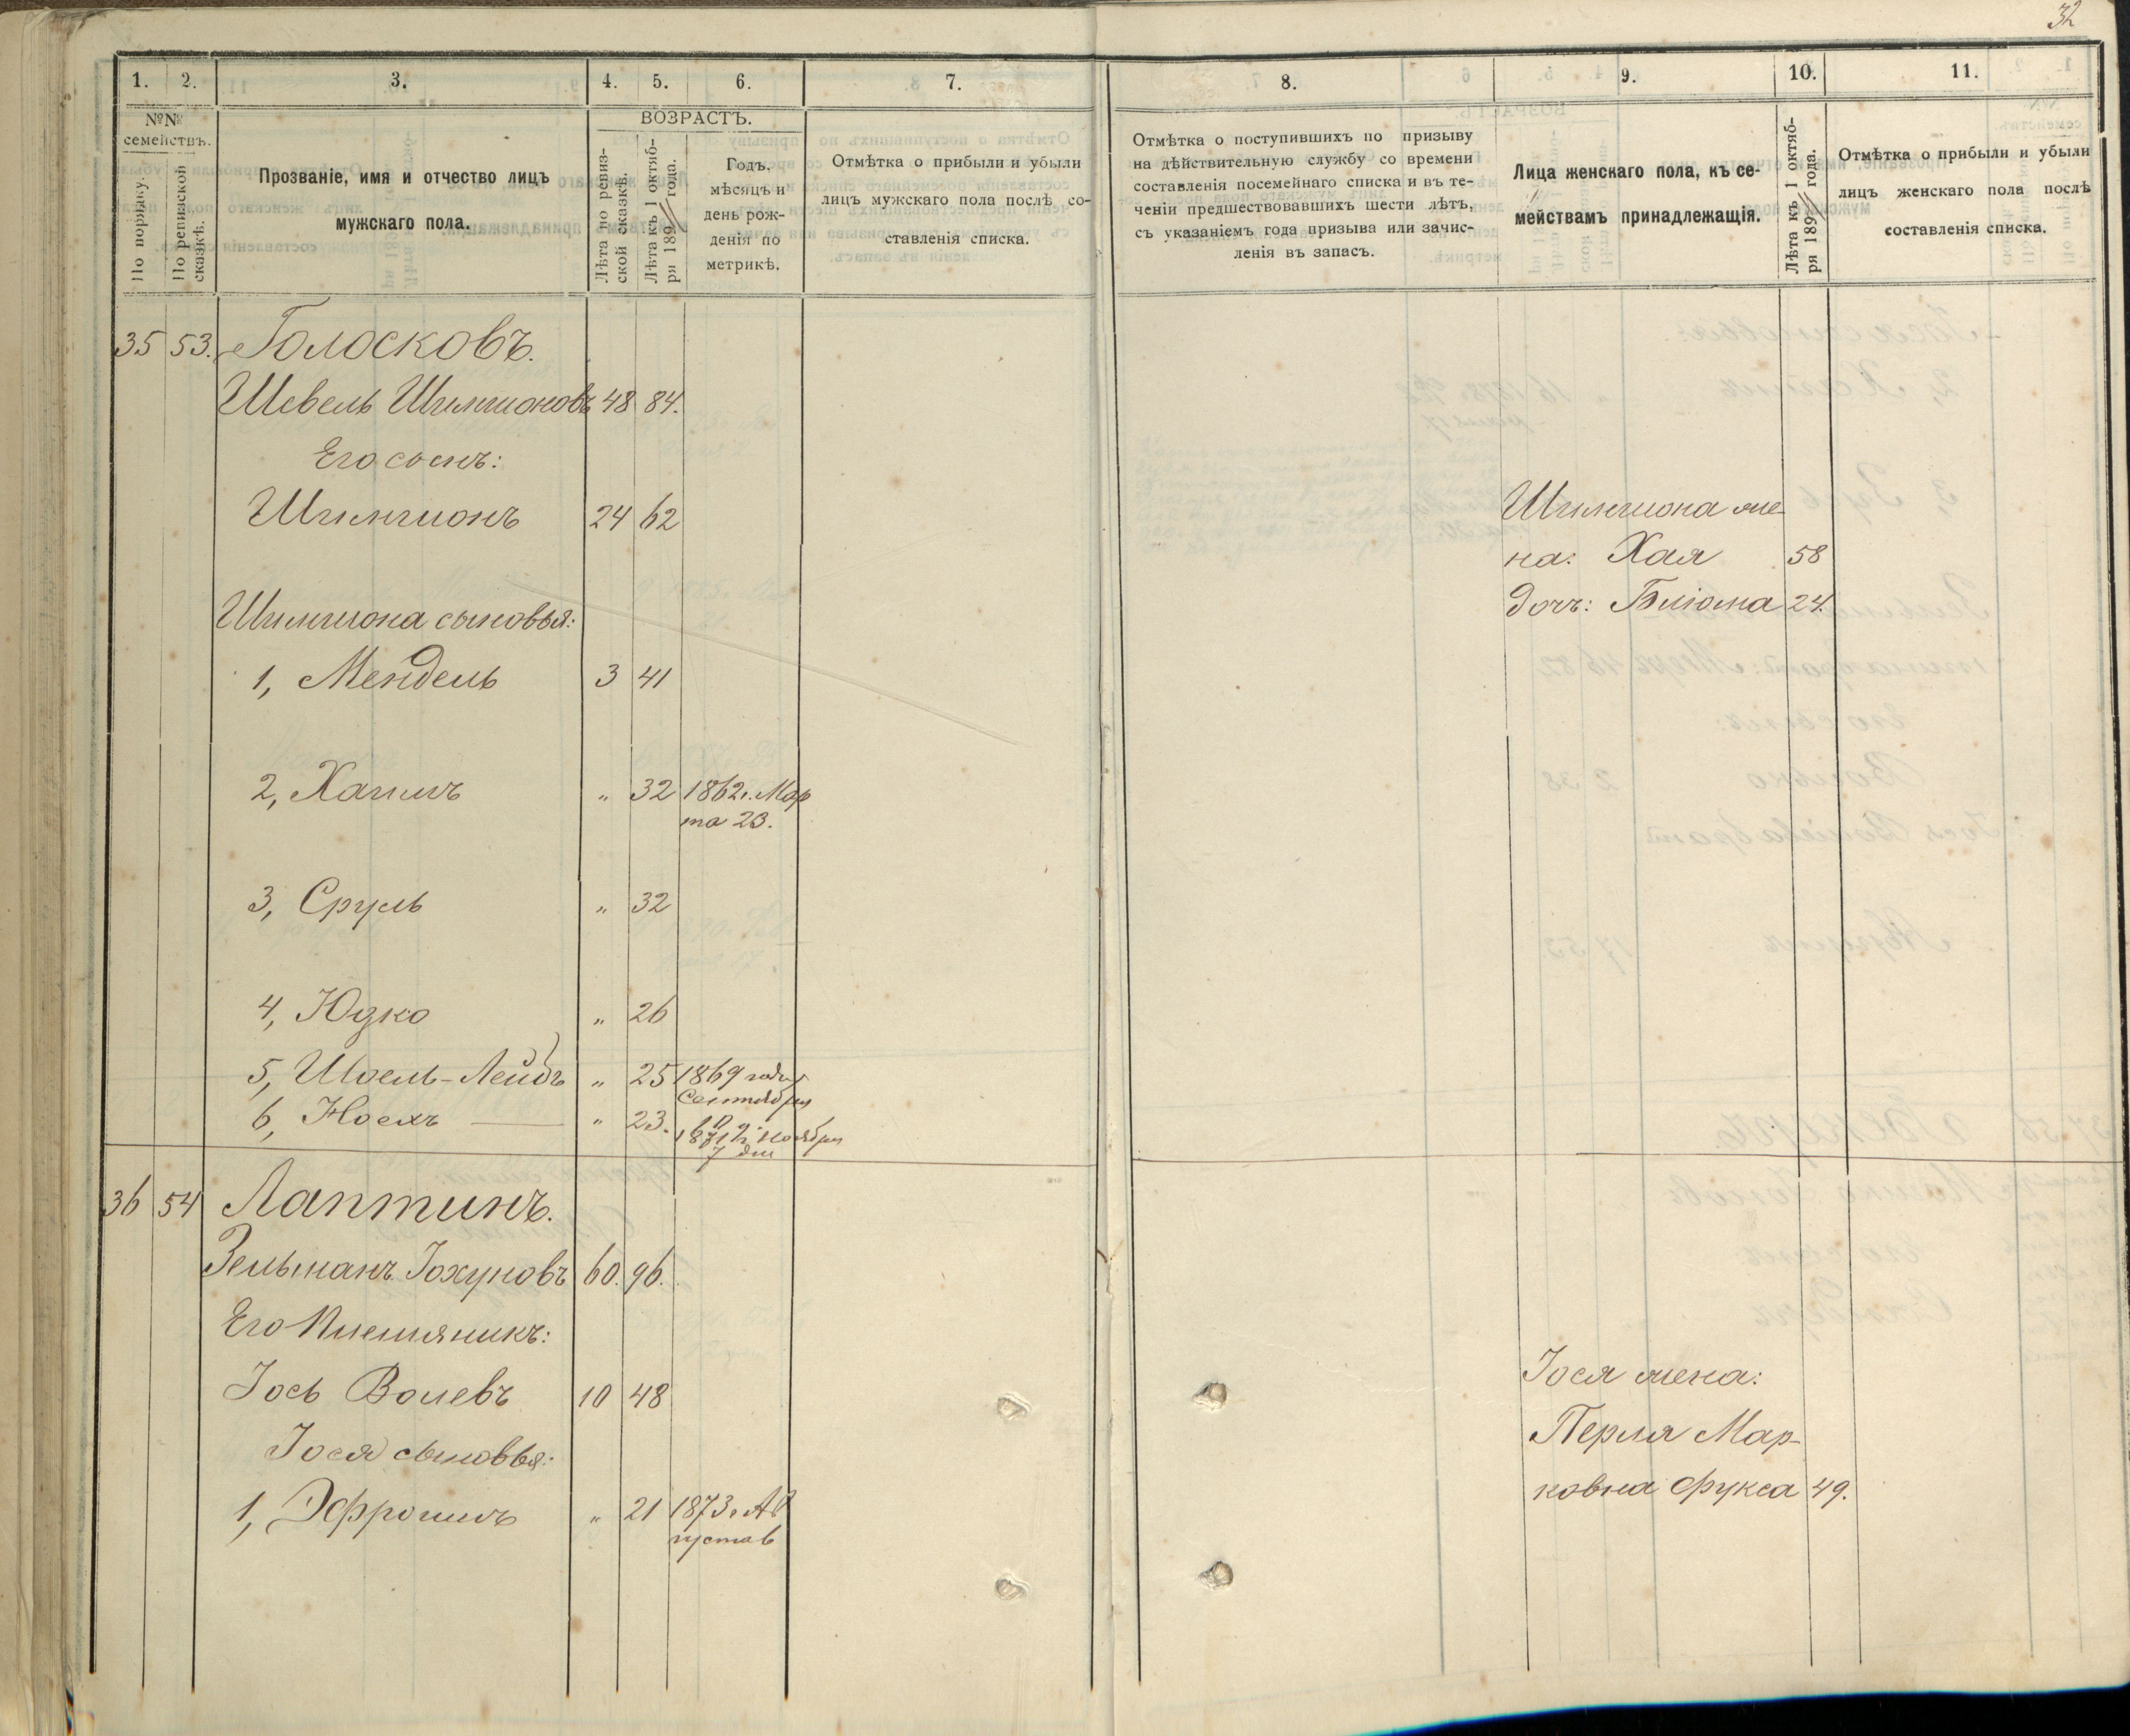 32
1. 2. 3. 4. 5. 6. 7. 8. 9. 10. 11.
№№ семействъ.
По порядку.
По ревизской сказкѣ.
Прозваніе, имя и отчество лицъ
мужскаго пола.
ВОЗРАСТЪ.
Лѣта по ревиз-
ской сказкѣ.
Лѣта къ 1 октяб-
ря 189 года.
Годъ,
мѣсяцъ и
день рож-
денія по
метрикѣ.
Отмѣтка о прибыли и убыли
лицъ мужскаго пола послѣ со-
ставленія списка.
Отмѣтка о поступившихъ по призыву
на дѣйствительную службу со времени
составленія посемейнаго списка и въ те-
ченіи предшествовавшихъ шести лѣтъ,
съ указаніемъ года призыва или зачис-
ленія въ запасъ.
Лица женскаго пола, къ се-
мействамъ принадлежащія.
Лѣта къ 1 октяб-
ря 189 года.
Отмѣтка о прибыли и убыли
лицъ женскаго пола послѣ
составленія списка.
35 53. Голосковъ.
Шевель Шимшоновъ 48 84.
Его сынъ:
Шимшонъ 24 62
Шимшона же-
на: Хая 58
дочь: Блюма 24.
Шимшона сыновья:
1, Мендель 3 41
2, Хаимъ „ 32 1862г. Мар
та 23.
3, Сруль „ 32
4, Юдко „ 26
5, Шоель-Лейбъ „ 25 1869 года
Сентября
10 д.
6, Носехъ „ 23. 1871 г. ноября
7 дня
36 54 Лаптинъ.
Зельманъ Іохуновъ 60. 96.
Его Племяникъ:
Іось Волевъ 10 48
Іося жена:
Перля Мар-
ковна Фукса 49.
Іося сыновья:
1, Эфроимъ „ 21 1873г. Ав
густа 6